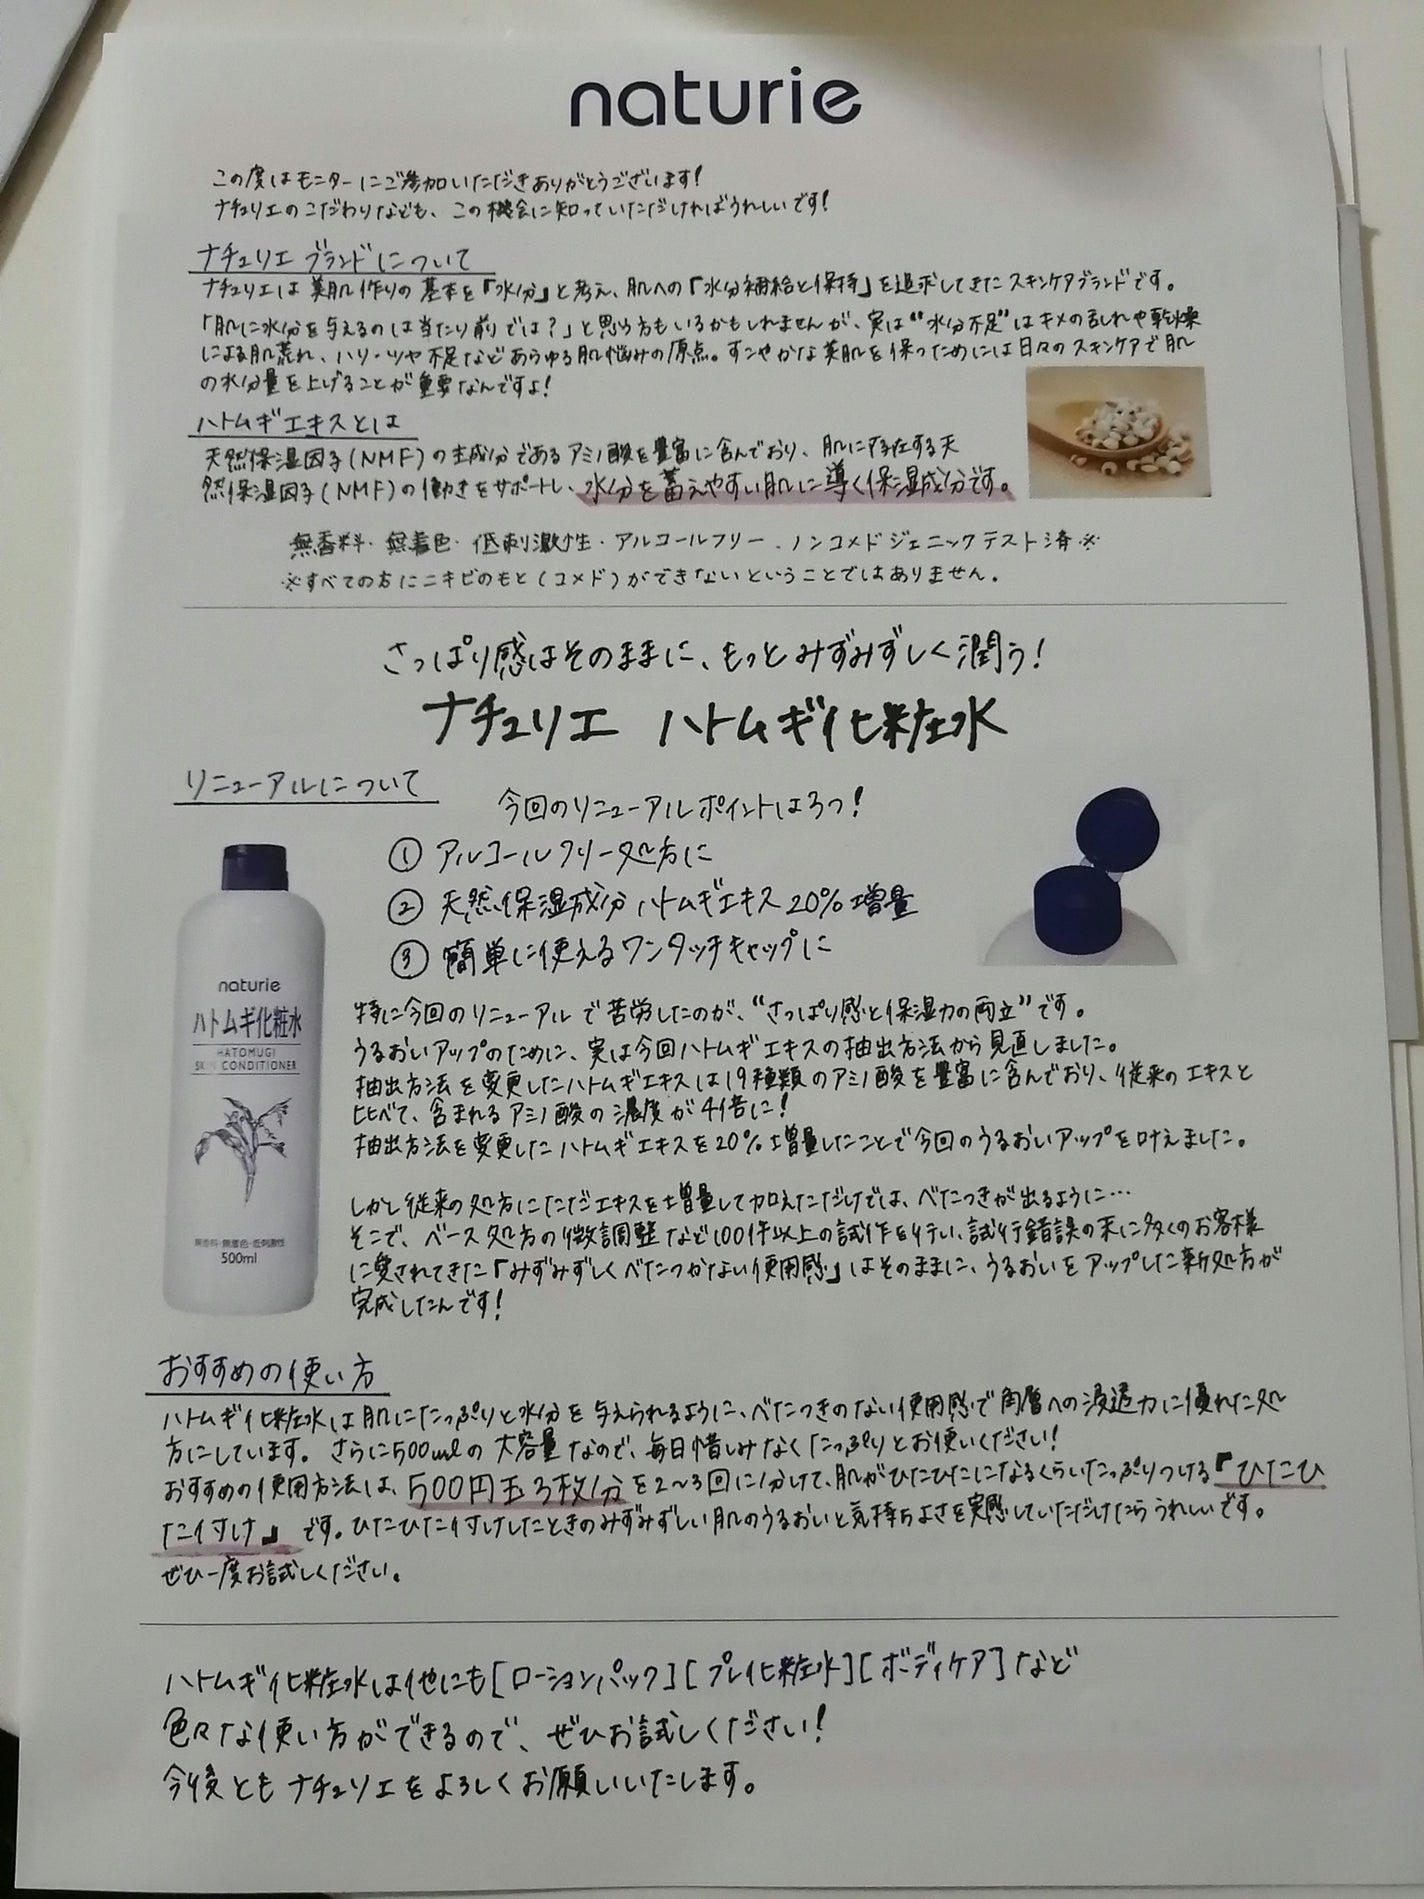 naturie
この度はモニターにご参加いただきありがとうございます!
ナチュリエのこだわりなども、この機会に知っていただければうれしいです!
ナチュリエ ブランドについて
ナチュリエは美肌作りの基本を「水分」と考え、肌への「水分補給と保持」を追求してきたスキンケアブランドです。
「肌に水分を与えるのは当たり前では?」と思う方もいるかもしれませんが、実は"水分不足"はキメの乱れや乾燥
による肌荒れ、ハリ・ツヤ不足などあらゆる肌悩みの原点。すこやかな美肌を保つためには日々のスキンケアで肌
の水分量を上げることが重要なんですよ!
ハトムギエキスとは
天然保湿因子(NMF)の主成分であるアミノ酸を豊富に含んでおり、肌に存在する天
然保湿因子(NMF)の働きをサポートし、水分を蓄えやすい肌に導く保湿成分です。
無香料・無着色・低刺激性・アルコールフリー・ノンコメドジェニックテスト済※
※すべての方にニキビのもと(コメド)ができないということではありません。
さっぱり感はそのままに、もっとみずみずしく潤う!
ナチュリエ ハトムギ化粧水
リニューアルについて
今回のリニューアルポイントは3つ!
① アルコールフリー処方に
② 天然保湿成分 ハトムギエキス 20%増量
③ 簡単に使えるワンタッチキャップに
naturie
ハトムギ化粧水
HATOMUGI
SKIN CONDITIONER
無香料・無着色・低刺激性
500ml
特に今回のリニューアルで苦労したのが、"さっぱり感と保湿力の両立"です。
うるおいアップのために、実は今回ハトムギエキスの抽出方法から見直しました。
抽出方法を変更したハトムギエキスは19種類のアミノ酸を豊富に含んでおり、従来のエキスと
比べて、含まれるアミノ酸の濃度が4倍に!
抽出方法を変更したハトムギエキスを20%増量したことで今回のうるおいアップを叶えました。
しかし従来の処方にただエキスを増量して加えただけでは、べたつきが出るように…
そこで、ベース処方の微調整など100件以上の試作を行い、試行錯誤の末に多くのお客様
に愛されてきた「みずみずしくべたつかない使用感」はそのままに、うるおいをアップした新処方が
完成したんです!
おすすめの使い方
ハトムギ化粧水は肌にたっぷりと水分を与えられるように、べたつきのない使用感で角層への浸透力に優れた処
方にしています。さらに500mlの大容量なので、毎日惜しみなくたっぷりとお使いください!
おすすめの使用方法は、500円玉3枚分を2~3回に分けて、肌がひたひたになるくらいたっぷりつける『ひたひ
た付け』です。ひたひた付けしたときのみずみずしい肌のうるおいと気持ちよさを実感していただけたらうれしいです。
ぜひ一度お試しください。
ハトムギ化粧水は他にも[ローションパック][プレ化粧水][ボディケア]など
色々な使い方ができるので、ぜひお試しください!
今後ともナチュリエをよろしくお願いいたします。